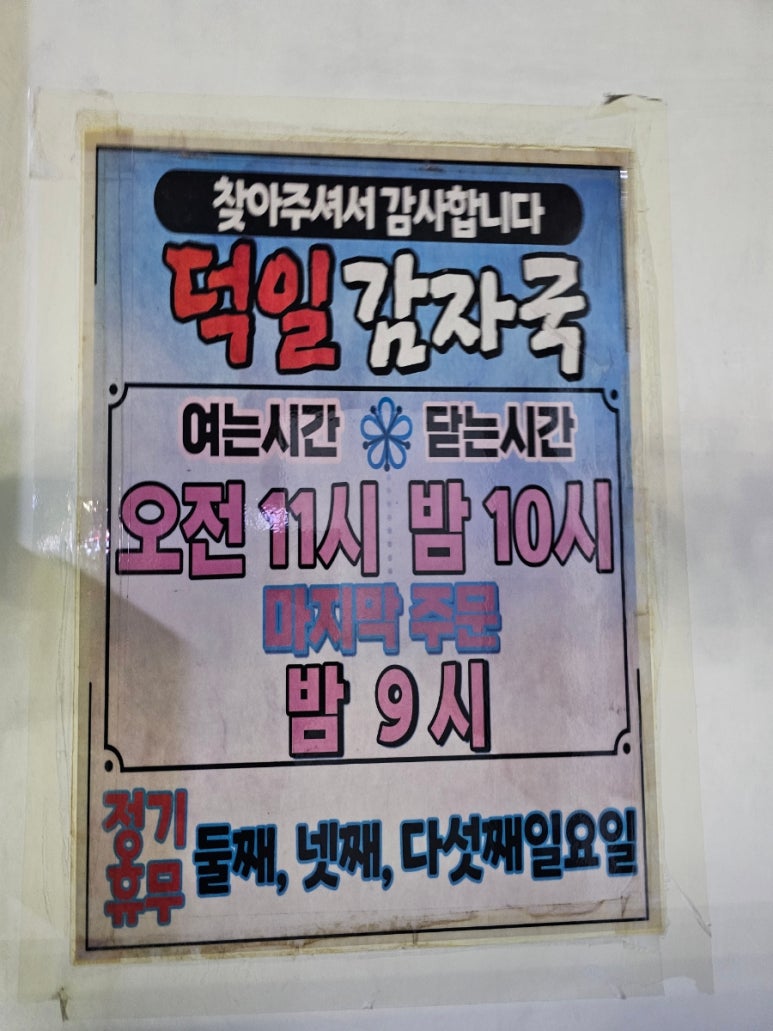 찾아주셔서 감사합니다
덕일 감자국
여는시간 닫는시간
오전 11시 밤 10시
마지막 주문
밤 9시
정기
휴무
둘째, 넷째, 다섯째일요일